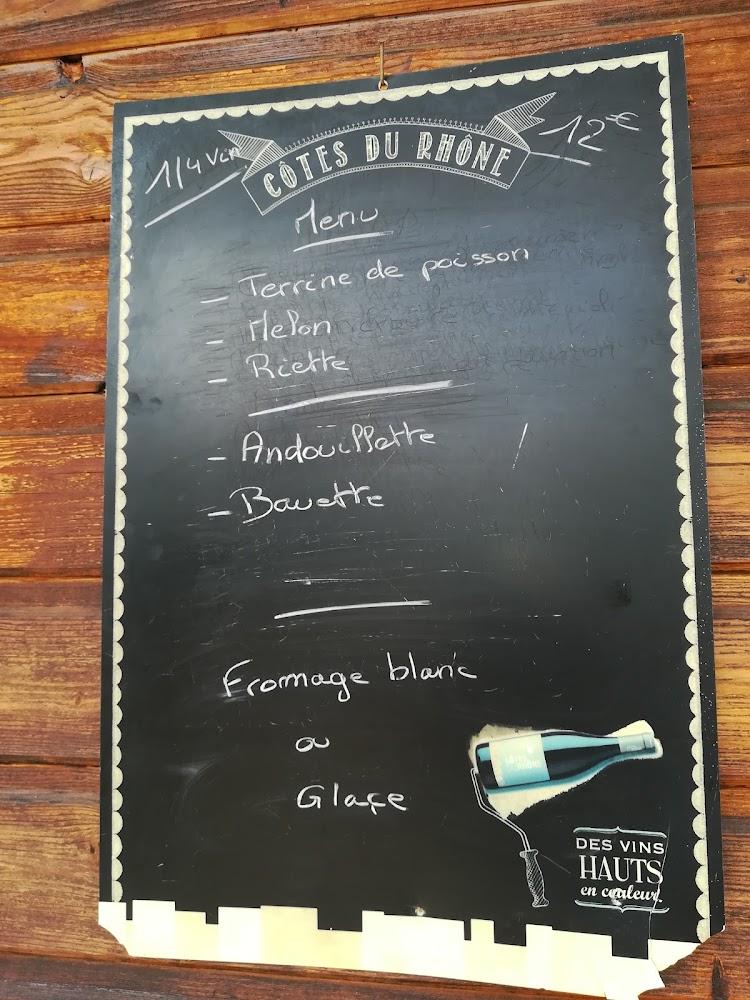 1/4 Vin
CÔTES DU RHÔNE
12€
Menu
- Terrine de poisson
- Melon
- Riette
- Andouillette
- Bavette
Fromage blanc
ou
Glaçe
DES VINS
HAUTS
en couleur.